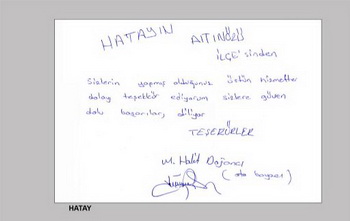 HATAYIN ALTINÖZÜ
İLÇE'sinden
Sizlerin yapmış olduğunuz üstün hizmetten
dolayı teşekkür ediyorum sizlere güven
dolu başarılar, diliyor
TEŞEKÜRLER
M. Halit
HATAY